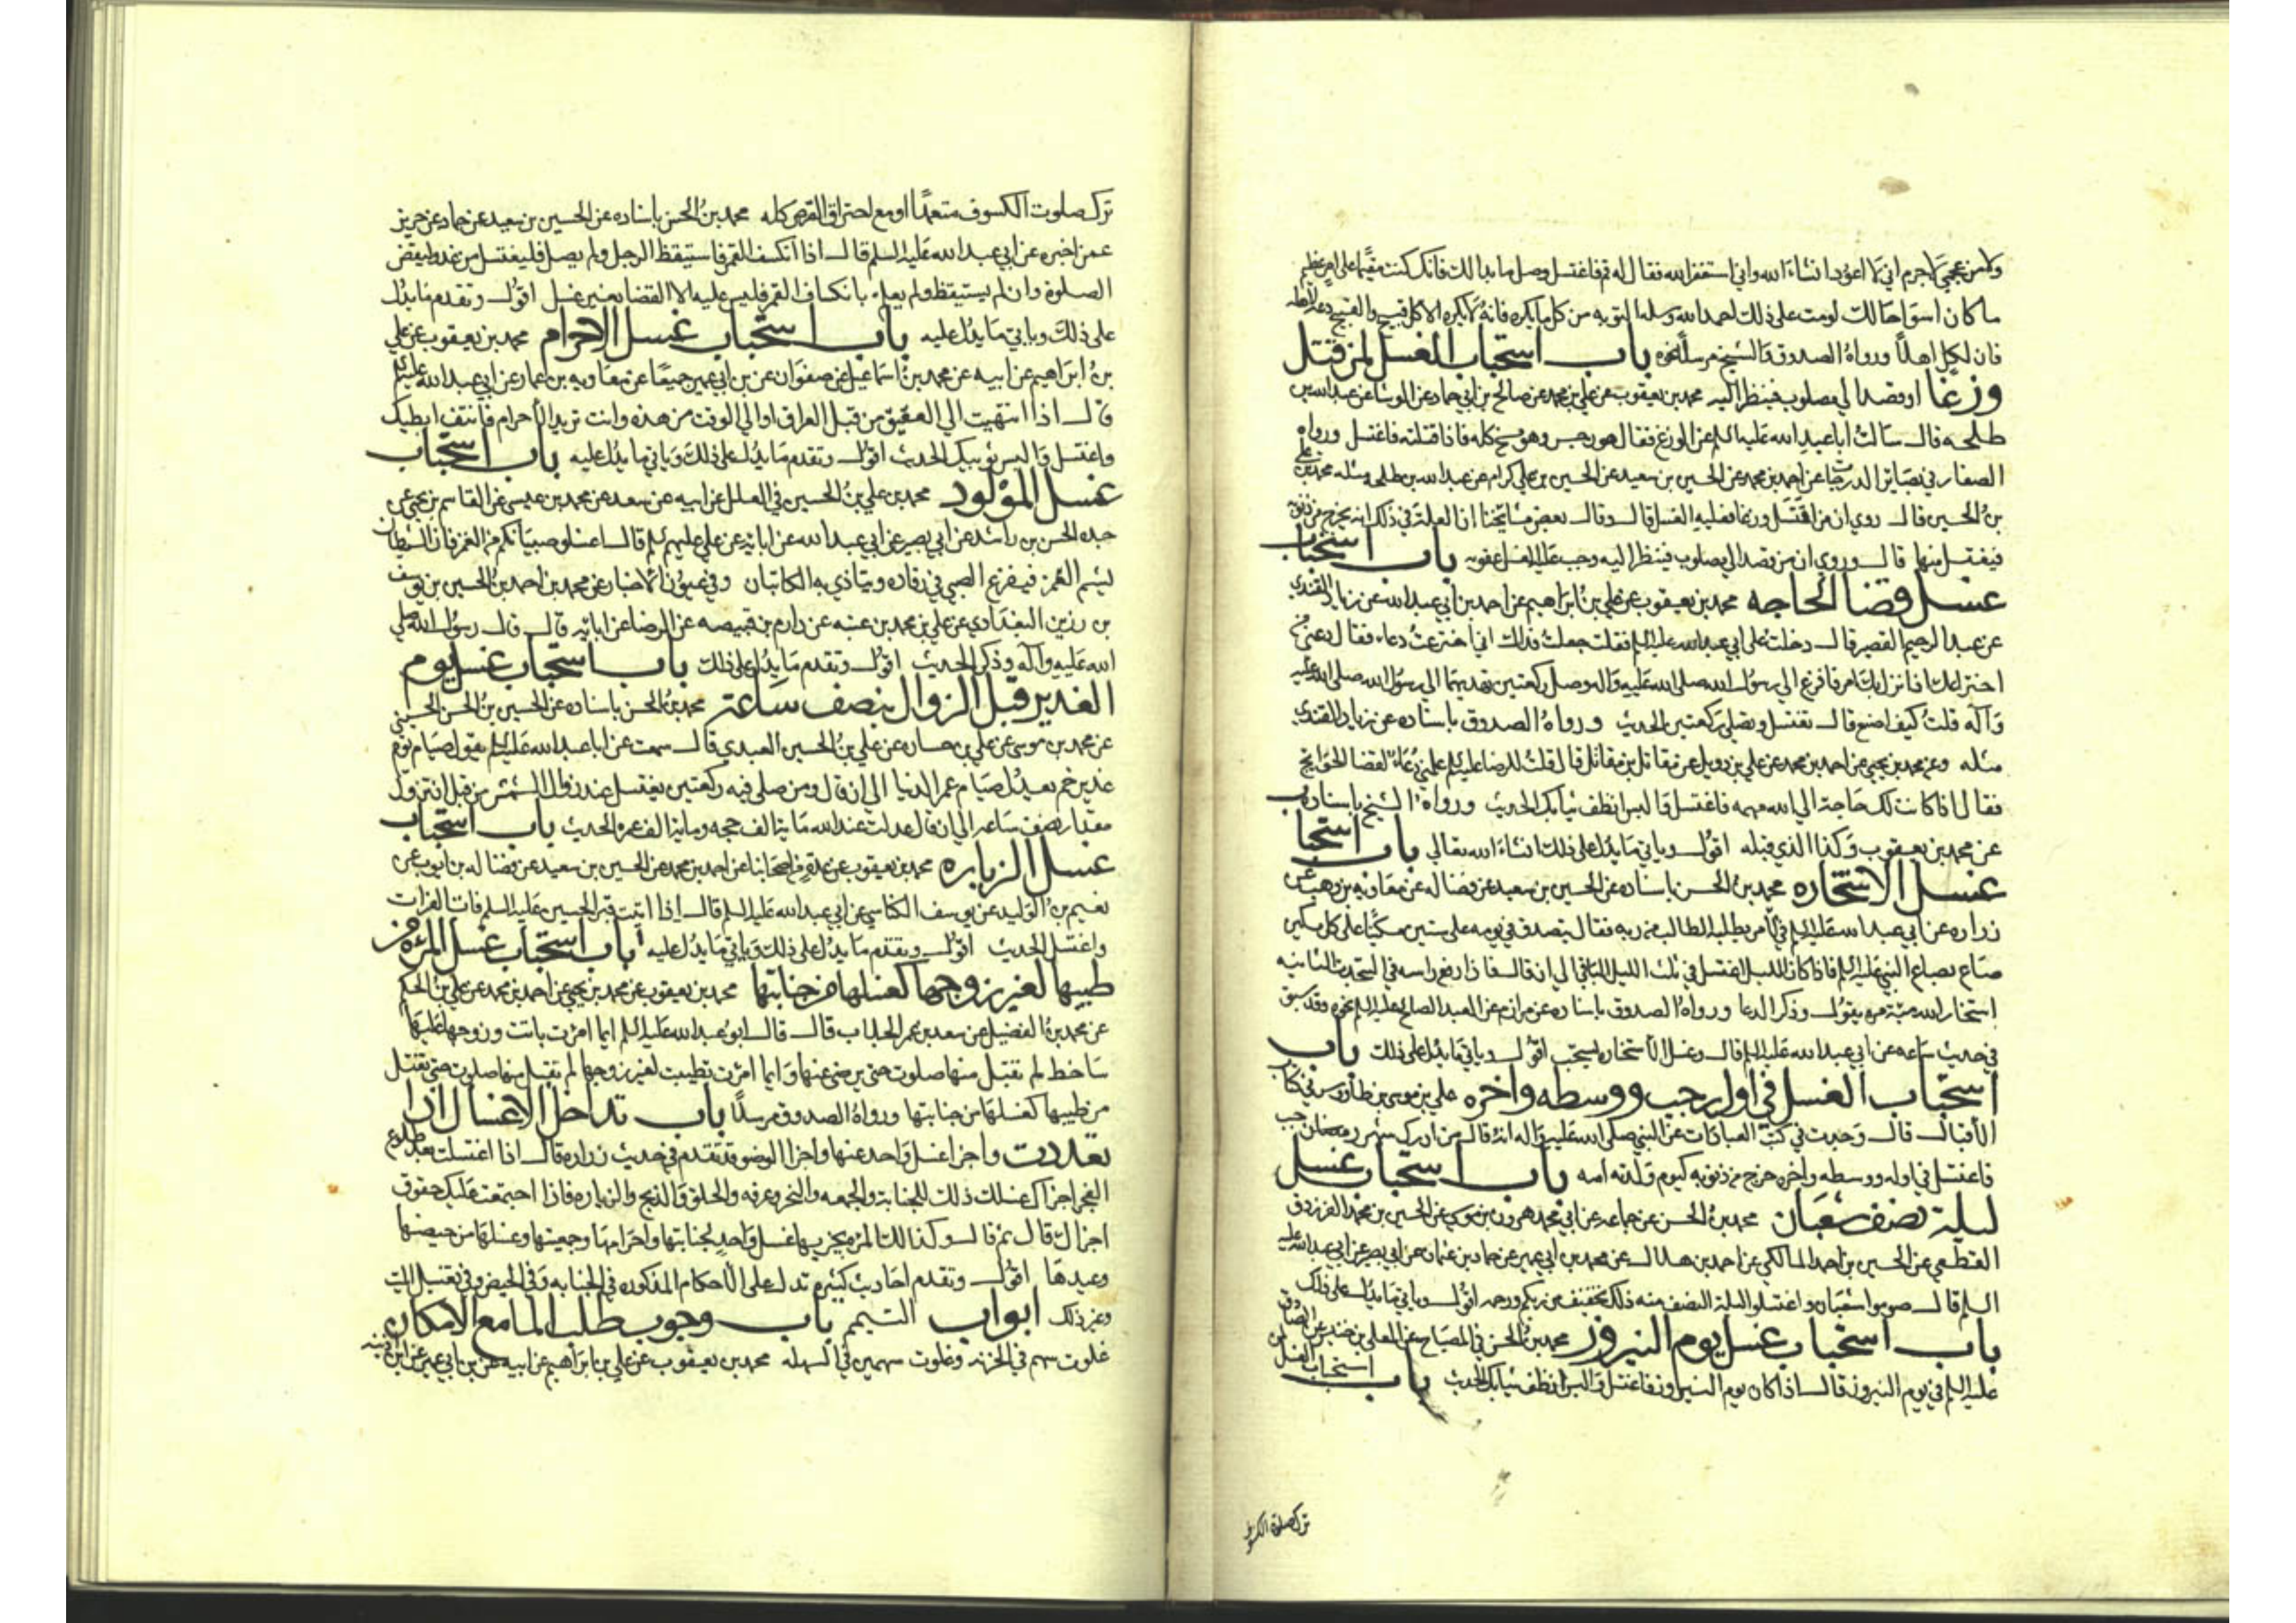 ولا من عجمي لا جرم اني لا اعود انشاء الله واني استغفر الله فقال له قم فاغتسل وصل ما بدا لك فانك كنت مقيما على امر عظيم
ما كان اسوأ حالك لو مت على ذلك احمد الله وسله التوبه من كل ما يكره فانه لا يكره الا كل قبيح والقبيح دعه لاهله
فان لكل اهلا ورواه الصدوق والشيخ مرسلا نحوه باب استحباب الغسل لمن قتل
وزغا او قصد الي مصلوب فينظر اليه محمد بن يعقوب عن علي بن محمد عن صالح بن ابي حماد عن الوشا عن عبد الله بن
طلحه قال سالت ابا عبد الله عليه السلم عن الوزغ فقال هو رجس وهو مسخ كله فاذا قتلته فاغتسل ورواه
الصفار في بصائر الدرجات عن احمد بن محمد عن الحسين بن سعيد عن الحسين بن علي كرام عن عبد الله بن طلحه مثله محمد بن علي
بن الحسين قال روي ان من قتل وزغا فعليه الغسل قال وقال بعض مشايخنا ان العلة في ذلك انه يخرج من ذنوبه
فيغتسل منها قال وروي ان من قصد الي مصلوب فينظر اليه وجب عليه الغسل عقوبه باب استحباب
غسل قضا الحاجه محمد بن يعقوب عن علي بن ابراهيم عن احمد بن ابي عبد الله عن زياد القندي
عن عبد الرحيم القصير قال دخلت على ابي عبد الله عليه السلم فقلت جعلت فداك اني اخترعت دعاء فقال دعني من
اختراعك اذا نزل بك امر فافزع الي رسول الله صلى الله عليه واله وصل ركعتين تهديهما الي رسول الله صلى الله عليه
وآله قلت كيف اصنع قال تغتسل وتصلي ركعتين الحديث ورواه الصدوق باسناده عن زياد القندي
مثله وعن محمد بن يحيي عن احمد بن محمد عن علي بن دويل عن مقاتل بن مقاتل قال قلت للرضا عليه السلم علمني دعاء لقضا الحوائج
فقال اذا كانت لك حاجة الي الله مهمه فاغتسل والبس انظف ثيابك الحديث ورواه الشيخ باسناده
عن محمد بن يعقوب وكذا الذي قبله اقول وياتي ما يدل على ذلك انشاء الله تعالي باب استحباب
غسل الاستخاره محمد بن الحسن باسناده عن الحسين بن سعيد عن فضاله عن معاويه بن وهب عن
زراره عن ابي عبد الله عليه السلم في الامر يطلبه الطالب من ربه فقال يتصدق في يومه على ستين مسكينا على كل مسكين
صاع بصاع النبي عليه السلم فاذا كان الليل اغتسل في ثلث الليل الباقي الي ان قال فاذا رفع راسه في السجدة الثانيه
استخار الله مئة مره يقول وذكر الدعا ورواه الصدوق باسناده عن مرازم عن العبد الصالح عليه السلم نحوه وقد سبق
في حديث سماعه عن ابي عبد الله عليه السلم قال وغسل الاستخاره يستحب اقول وياتي ما يدل على ذلك باب
استحباب الغسل في اول رجب ووسطه واخره علي بن موسى بن طاووس في كتاب
الاقبال قال وجدت في كتب العبادات عن النبي صلى الله عليه واله انه قال من ادرك شهر رجب
فاغتسل في اوله ووسطه واخره خرج من ذنوبه كيوم ولدته امه باب استحباب غسل
ليلة نصف شعبان محمد بن الحسن عن جماعه عن ابي محمد هرون بن موسى عن الحسين بن محمد الفرزدق
القطعي عن الحسين بن احمد المالكي عن احمد بن هلال عن محمد بن ابي عمير عن حماد بن عثمان عن ابي بصير عن ابي عبد الله عليه
السلم قال صوموا شعبان واغتسلوا ليلة النصف منه ذلك تخفيف من ربكم ورحمه اقول وياتي ما يدل على ذلك
باب استحباب غسل يوم النيروز محمد بن الحسن في المصباح عن المعلي بن خنيس عن الصادق
عليه السلم في يوم النيروز قال اذا كان يوم النيروز فاغتسل والبس انظف ثيابك الحديث باب استحباب الغسل لمن
ترك صلوة الكسوف
ترك صلوت الكسوف متعمدا او مع احتراق القرص كله محمد بن الحسن باسناده عن الحسين بن سعيد عن حماد عن حريز
عمن اخبره عن ابي عبد الله عليه السلم قال اذا انكسف القمر فاستيقظ الرجل ولم يصل فليغتسل من غد وليقض
الصلوة وان لم يستيقظ ولم يعلم بانكساف القمر فليس عليه الا القضا بغير غسل اقول وتقدم ما يدل
على ذلك وياتي ما يدل عليه باب استحباب غسل الاحرام محمد بن يعقوب عن علي
بن ابراهيم عن ابيه عن محمد بن اسماعيل عن صفوان عن بن ابي عمير جميعا عن معاويه بن عمار عن ابي عبد الله عليه السلم
قال اذا انتهيت الي العقيق من قبل العراق او الي الوقت من هذه وانت تريد الاحرام فانتف ابطيك
واغتسل والبس ثوبيك الحديث اقول وتقدم ما يدل على ذلك وياتي ما يدل عليه باب استحباب
غسل المولود محمد بن علي بن الحسين في العلل عن ابيه عن سعد عن محمد بن عيسى عن القاسم بن يحيي عن
جده الحسن بن راشد عن ابي بصير عن ابي عبد الله عن ابائه عن علي عليهم السلم قال اغسلوا صبيانكم من الغمر فان الشيطان
يشم الغمر فيفزع الصبي في رقاده ويتاذي به الكاتبان وفي عيون الاخبار عن محمد بن احمد بن الحسين بن يوسف
بن رزين البغدادي عن علي بن محمد بن عنبسه عن دارم بن قبيصه عن الرضا عن ابائه قال قال رسول الله صلى
الله عليه وآله وذكر الحديث اقول وتقدم ما يدل على ذلك باب استحباب غسل يوم
الغدير قبل الزوال بنصف ساعة محمد بن الحسن باسناده عن الحسين بن الحسن الحسيني
عن محمد بن موسى عن علي بن حسان عن علي بن الحسين العبدي قال سمعت عن ابا عبد الله عليه السلم يقول صيام يوم
غدير خم يعدل صيام عمر الدنيا الي ان قال ومن صلى فيه ركعتين يغتسل عند زوال الشمس من قبل ان تزول
مقدار نصف ساعه الي ان قال عدلت عند الله ماية الف حجه وماية الف عمرة الحديث باب استحباب
غسل الزياره محمد بن يعقوب عن عدة من اصحابنا عن احمد بن محمد عن الحسين بن سعيد عن فضاله بن ايوب عن
نعيم بن الوليد عن يوسف الكناسي عن ابي عبد الله عليه السلم قال اذا اتيت قبر الحسين عليه السلم فات الفرات
واغتسل الحديث اقول وتقدم ما يدل على ذلك وياتي ما يدل عليه باب استحباب غسل المرءه من
طيبها لغير زوجها كغسلها من جنابتها محمد بن يعقوب عن محمد بن يحيي عن احمد بن محمد عن علي بن الحكم
عن محمد بن الفضيل عن سعد بن عمر الجلاب قال قال ابو عبد الله عليه السلم ايما امرءت باتت وزوجها عليها
ساخط لم تقبل منها صلوت حتى يرضى عنها وايما امرءت تطيبت لغير زوجها لم تقبل منها صلوت حتى تغتسل
من طيبها كغسلها من جنابتها ورواه الصدوق مرسلا باب تداخل الاغسال اذا
تعددت واجزا غسل واحد عنها واجزا الوضو قد تقدم في حديث زراره قال اذا اغتسلت بعد طلوع
الفجر اجزاك غسلك ذلك للجنابة والجمعه والنحر وعرفه والحلق والذبح والزياره فاذا اجتمعت عليك حقوق
اجزاك قال ثم قال وكذالك المرءه يجزيها غسل واحد لجنابتها واحرامها وجمعتها وغسلها من حيضها
وعيدها اقول وتقدم احاديث كثيره تدل على الاحكام المذكوره في الجنابه وفي الحيض وفي تغسيل الميت
وغير ذلك ابواب التيمم باب وجوب طلب الما مع الامكان
غلوت سهم في الحزنه وغلوت سهمين في السهله محمد بن يعقوب عن علي بن ابراهيم عن ابيه عن بن ابي عمير عن ابن اذينه